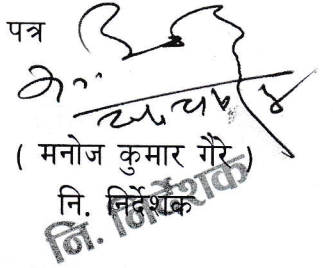 पत्र
( मनोज कुमार गैरे )
नि. निर्देशक
नि. निर्देशक